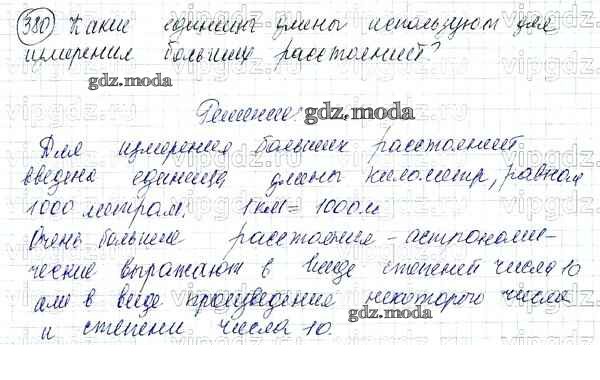 380 Какие единицы длины используют для
измерения больших расстояний?
gdz.moda
Решение
gdz.moda
Для измерения больших расстояний
введена единица длины километр, равная
1000 метрам. 1 км = 1000 м
Очень большие расстояния - астрономи-
ческие выражают в виде степеней числа 10
или в виде произведения некоторого числа
и степени числа 10.
gdz.moda